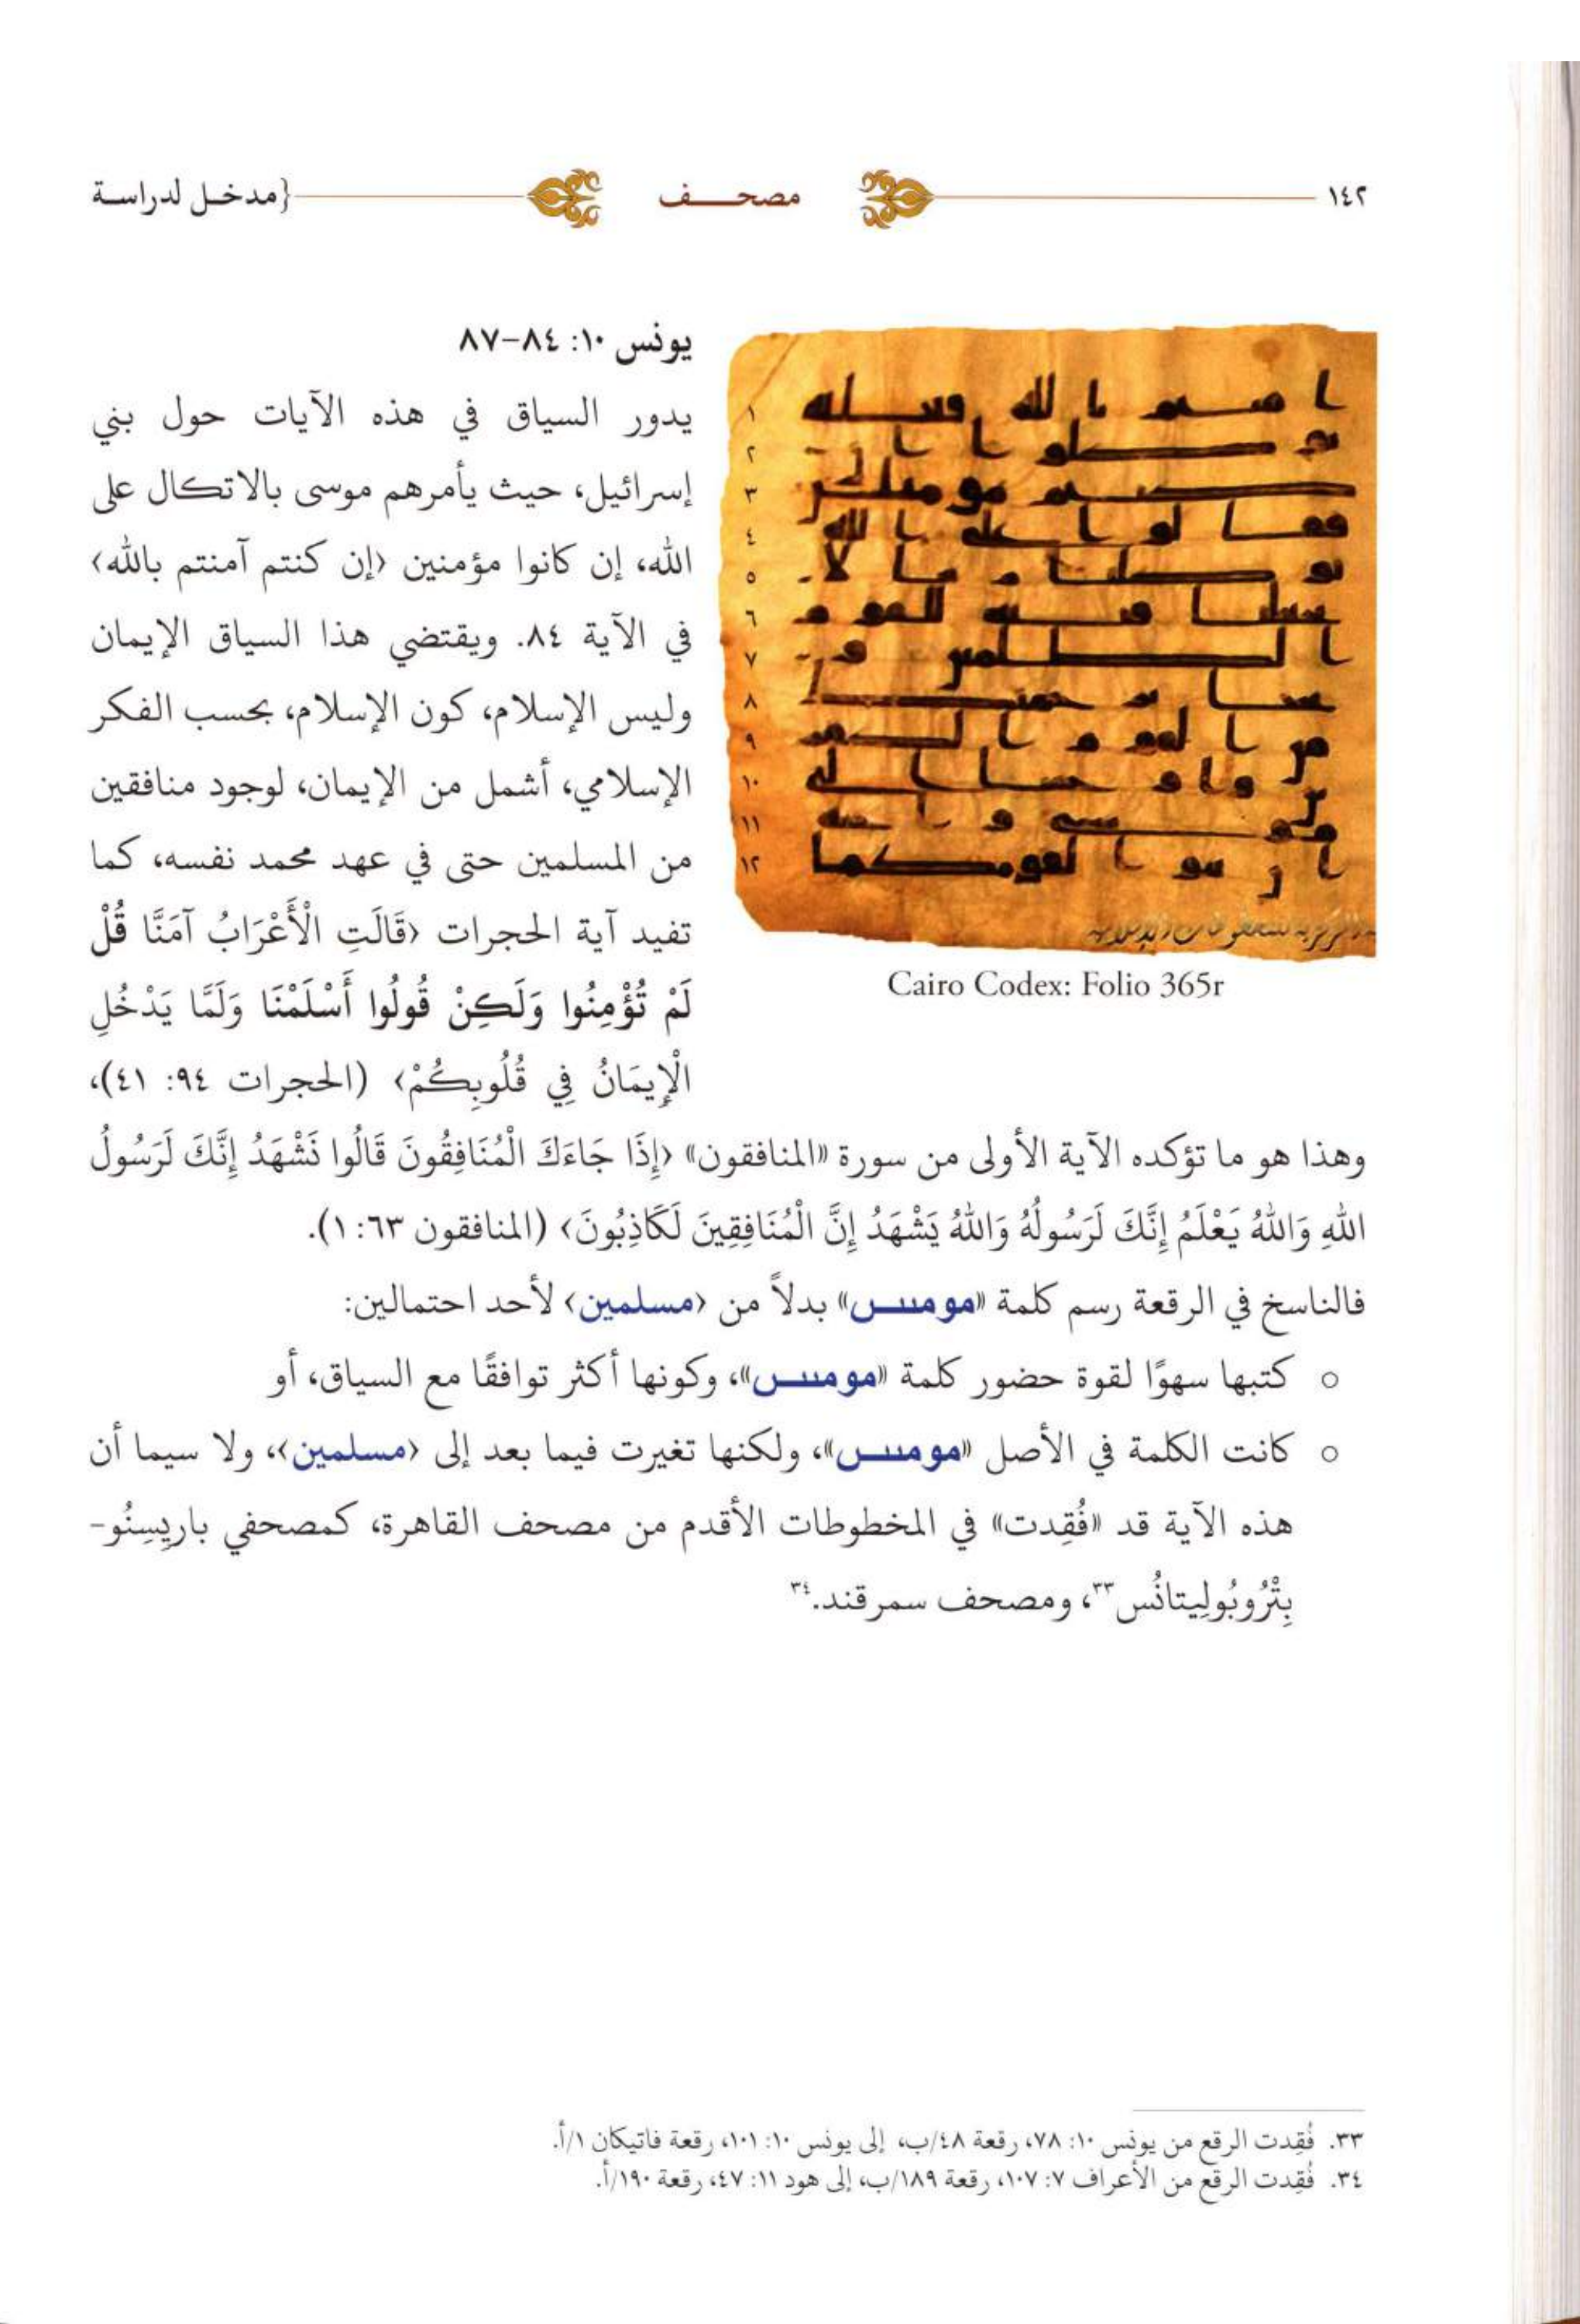 ١٤٢
مصحـــف
{مدخـل لدراسـة
يونس ١٠: ٨٤-٨٧
يدور السياق في هذه الآيات حول بني
إسرائيل، حيث يأمرهم موسى بالاتكال على
الله، إن كانوا مؤمنين ‹إن كنتم آمنتم بالله›
في الآية ٨٤. ويقتضي هذا السياق الإيمان
وليس الإسلام، كون الإسلام، بحسب الفكر
الإسلامي، أشمل من الإيمان، لوجود منافقين
من المسلمين حتى في عهد محمد نفسه، كما
تفيد آية الحجرات ‹قَالَتِ الْأَعْرَابُ آمَنَّا قُلْ
لَمْ تُؤْمِنُوا وَلَكِنْ قُولُوا أَسْلَمْنَا وَلَمَّا يَدْخُلِ
الْإِيمَانُ فِي قُلُوبِكُمْ› (الحجرات ٩٤: ٤١)،
١
٢
٣
٤
٥
٦
٧
٨
٩
١٠
١١
١٢
Cairo Codex: Folio 365r
وهذا هو ما تؤكده الآية الأولى من سورة «المنافقون» ‹إِذَا جَاءَكَ الْمُنَافِقُونَ قَالُوا نَشْهَدُ إِنَّكَ لَرَسُولُ
اللهِ وَاللهُ يَعْلَمُ إِنَّكَ لَرَسُولُهُ وَاللهُ يَشْهَدُ إِنَّ الْمُنَافِقِينَ لَكَاذِبُونَ› (المنافقون ٦٣: ١).
فالناسخ في الرقعة رسم كلمة «مومٮٮں» بدلاً من ‹مسلمين› لأحد احتمالين:
○ كتبها سهوًا لقوة حضور كلمة «مومٮٮں»، وكونها أكثر توافقًا مع السياق، أو
○ كانت الكلمة في الأصل «مومٮٮں»، ولكنها تغيرت فيما بعد إلى ‹مسلمين›، ولا سيما أن
هذه الآية قد «فُقِدت» في المخطوطات الأقدم من مصحف القاهرة، كمصحفي باريِسِنُو-
بِتْرُوبُولِيتانُس٣٣، ومصحف سمرقند.٣٤
٣٣. فُقِدت الرقع من يونس ١٠: ٧٨، رقعة ٤٨/ب، إلى يونس ١٠: ١٠١، رقعة فاتيكان ١/أ.
٣٤. فُقِدت الرقع من الأعراف ٧: ١٠٧، رقعة ١٨٩/ب، إلى هود ١١: ٤٧، رقعة ١٩٠/أ.